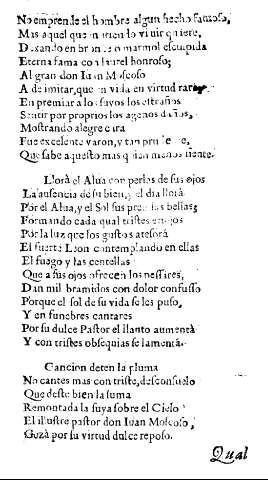 No emprende el hombre algun hecho famoso,
Mas aquel que muriendo viuir quiere,
Dexando en bronce o marmol esculpida
Eterna fama con laurel honroso;
Al gran don Iuan Moscoso
A de imitar, que en vida en virtud raro
En premiar a los suyos los estraños
Sentir por proprios los agenos daños,
Mostrando alegre cara
Fue excelente varon, y tan prudente,
Que sabe aquesto mas quien menos siente.
Llorà el Alua con perlas de sus ojos
La ausencia de su bien, y el dia llorà
Por el Alua, y el Sol sus bellas;
Formando cada qual tristes enojos
Por la luz que los gustos atesorà
El fuerte Leon contemplando en ellas
El fuego y las centellas
Que a sus ojos ofrecen los pessares,
Dan mil bramidos con dolor confusso
Porque el sol de su vida se les puso,
Y en funebres cantares
Por su dulce Pastor el llanto aumentà
Y con tristes obsequias se lamentà.
Cancion deten la pluma
No cantes mas con triste, desconsuelo
Que deste bien la suma
Remontada la suya sobre el Cielo
El illustre pastor don Iuan Moscoso,
Gozà por su virtud dulce reposo.
Qual